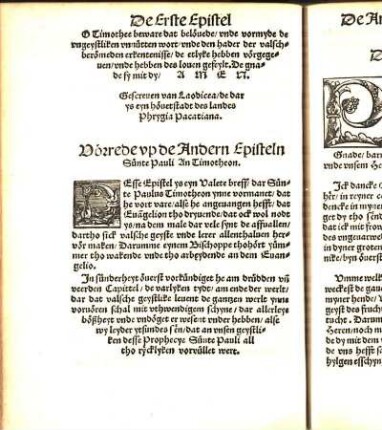 De Erste Epistel
O Timothee beware dat belövede/ vnde vormyde de
vngeystliken vnnütten wort/ vnde den hader der valsch-
berömeden erkentenisse/ de etlyke hebben vörgege-
uen/ vnde hebben des louen gefeylt. De gna-
de sy mit dy/ A M E N.
Gescreuen van Laodicea/ de dar
ys eyn höuetstadt des landes
Phrygia Pacatiana.
Vörrede vp de Andern Episteln
Sünte Pauli An Timotheon.
DEsse Epistel ys eyn Valete breff/ dar Sün-
te Paulus Timotheon ynne vormanet/ dat
he vort vare/ alse he angeuangen hefft/ dat
Euägelion tho dryuende/ dat ock wol nodt
ys/ na dem male dar vele synt de affuallen/
dartho sick valsche geyste vnde lerer allenthaluen her-
vör maken/ Darumme eynem Bisschoppe thohört yüm-
mer tho wakende vnde tho arbeydende an dem Euan-
gelio.
In sünderheyt öuerst vorkündiget he am drüdden vñ
veerden Capittel/ de varlyken tyde/ am ende der werlt/
dar dat valsche geystlike leuent de gantzen werlt ynne
vorüören schal mit vthwendigem schyne/ dar allerleye
bößheyt vnde vndöget er wesent vnder hebben/ alse
wy leyder ytsundes sën/ dat an vnsen geystli-
ken desse Prophecye Sünte Pauli all
tho rycklyken vorvüllet wert.
De An
D
P
Gnade/ bar
vnde vnsem He
Ick dancke
hër/ in reyner
dencke in mynen
get dy tho sen
dat ick mit frow
des vngeuarwe
Vmme welk
weckest de gaue
myner hende/
geyst des frucht
tucht. Darum
Heren/ noch m
de dy mit dem
de vns hefft
hylgen esschyn